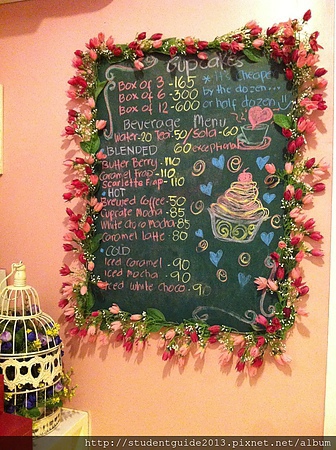 Cupcakes
Box of 3 -165
Box of 6 -300
Box of 12 -600
*it's cheaper
by the dozen...
or half dozen!!
Beverage Menu
Water-20 Tea-50/Soda-60
BLENDED 60 exceptional
Butter Berry -110
Caramel Frap -110
Scarletta Frap -110
HOT
Brewed Coffee - 50
Cupcake Mocha - 85
White Choco Mocha - 85
Caramel latte - 80
COLD
Iced Caramel - 90
Iced mocha - 90
Iced white choco - 90
http://studentguide2013.pixnet.net/album